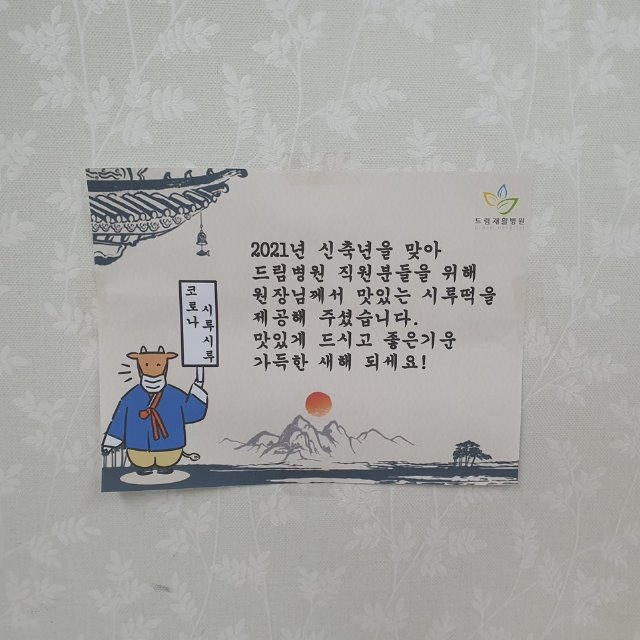 드림재활병원
2021년 신축년을 맞아
드림병원 직원분들을 위해
원장님께서 맛있는 시루떡을
제공해 주셨습니다.
맛있게 드시고 좋은기운
가득한 새해 되세요!
코로나
시루시루